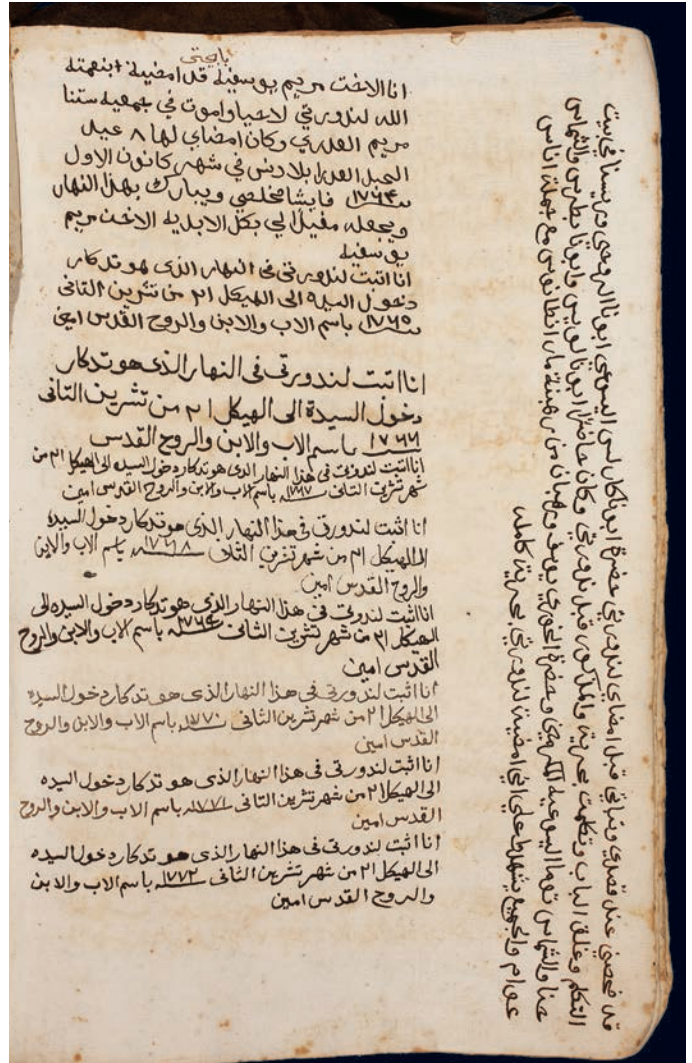 بايجتي
انا الاخت مريم يوسفية قد امضيت ابنعمته
الله لندورتي لاحيا واموت في جمعية ستنا
مريم العدري وكان امضاي لها ٨ عيد
الحبل العدرا بلادنس في شهر كانون الاول
سنة ١٧٦٤ فايشا مخلصي ويبارك بهذا النهار
ويجعله مقبل الي بكل الابدية الاخت مريم
يوسفية
انا اتبت لندورتي في النهار الذي هو تدكار
دخول السيدة الى الهيكل ٢١ من تشرين التاني
سنة ١٧٦٥ باسم الاب والابن والروح القدس امين
انا اتبت لندورتي في النهار الذي هو تدكار
دخول السيدة الى الهيكل ٢١ من تشرين التاني
سنة ١٧٦٦ باسم الاب والابن والروح القدس
انا اتبت لندورتي في هذا النهار الذي هو تدكار دخول السيده الى الهيكل ٢١ من
شهر تشرين التاني سنة ١٧٦٧ باسم الاب والابن والروح القدس امين
انا اثبت لندورتي في هذا النهار الذي هو تدكار دخول السيده
الى الهيكل ٢١ من شهر تشرين الثاني سنة ١٧٦٨ باسم الاب والابن
والروح القدس امين
انا اثبت لندورتي في هذا النهار الذي هو تدكار دخول السيده الى
الهيكل ٢١ من شهر تشرين الثاني سنة ١٧٦٩ باسم الاب والابن والروح
القدس امين
انا اثبت لندورتي في هذا النهار الذي هو تدكار دخول السيده
الى الهيكل ٢١ من شهر تشرين الثاني سنة ١٧٧٠ باسم الاب والابن والروح
القدس امين
انا اثبت لندورتي في هذا النهار الذي هو تدكار دخول السيده
الى الهيكل ٢١ من شهر تشرين الثاني سنة ١٧٧١ باسم الاب والابن والروح
القدس امين
انا اثبت لندورتي في هذا النهار الذي هو تدكار دخول السيده
الى الهيكل ٢١ من شهر تشرين الثاني سنة ١٧٧٢ باسم الاب والابن
والروح القدس امين
قد فحصني عند قصدي ونياتي قبل امضاي لندورتي حضرة ابونا اليسوعي ابونا الروحي وريسنا في بيت
التكلم وغلق الباب وتكلمت بحرية والمدكور قبل ندورتي وكان حاضر ابونا لويس وابونا بطرس والشماس
حنا والشماس توما اليسوعية المكرمين وحضرة الخوري يوسف ورهبان من رهبنة مار انطانيوس مع جملة اناس
عوام والجميع يشهدوا علي اني امضيت لندورتي بحرية كامله